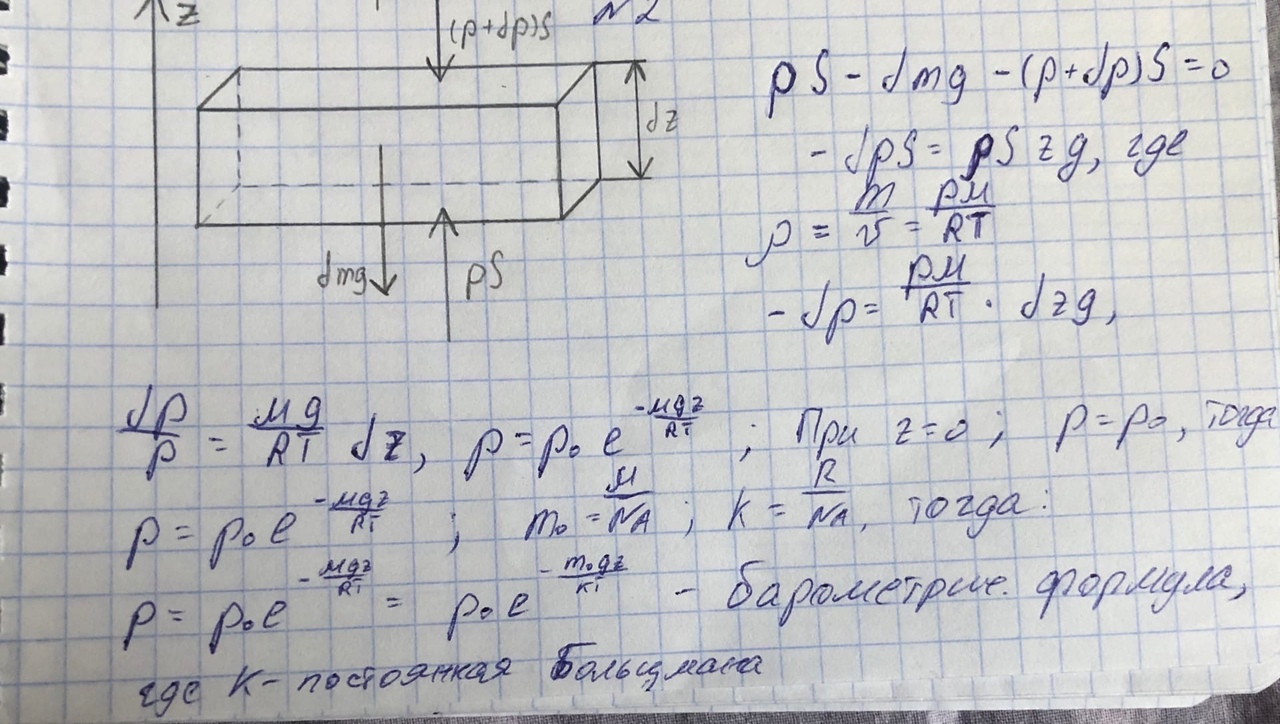 z
(p+dp)S
№2
dz
dmg
pS
pS - dmg - (p+dp)S = 0
- dpS = ρS zg, где
ρ = m/v = pM/RT
- dp = pM/RT · dzg,
dp/p = Mg/RT dz, p = p₀ e^(-Mgz/RT) ; При z=0 ; p=p₀, тогда
p = p₀ e^(-Mgz/RT) ; m₀ = M/NA ; K = R/NA, тогда:
p = p₀ e^(-Mgz/RT) = p₀ e^(-m₀gz/KT) - барометрич. формула,
где K - постоянная Больцмана